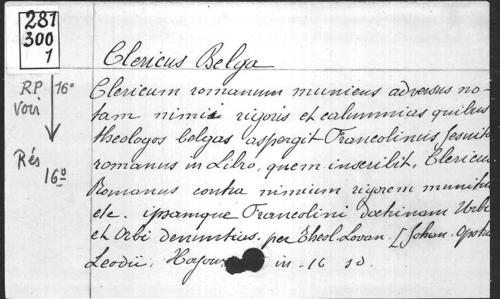 281
300
1
Clericus Belga
RP 16°
voir
Rés
16°
Clericum romanum muniens adversus no-
tam nimii rigoris et calumnias quibus
theologos belgas aspergit Francolinus Jesuita
romanus in Libro, quem inscribit, Clericus
Romanus contra nimium rigorem munitus
etc. ipsamque Francolini doctrinam Urbi
et Orbi denuntias. per Theol. Lovan. [Johan. Opstr
Leodii, in-16